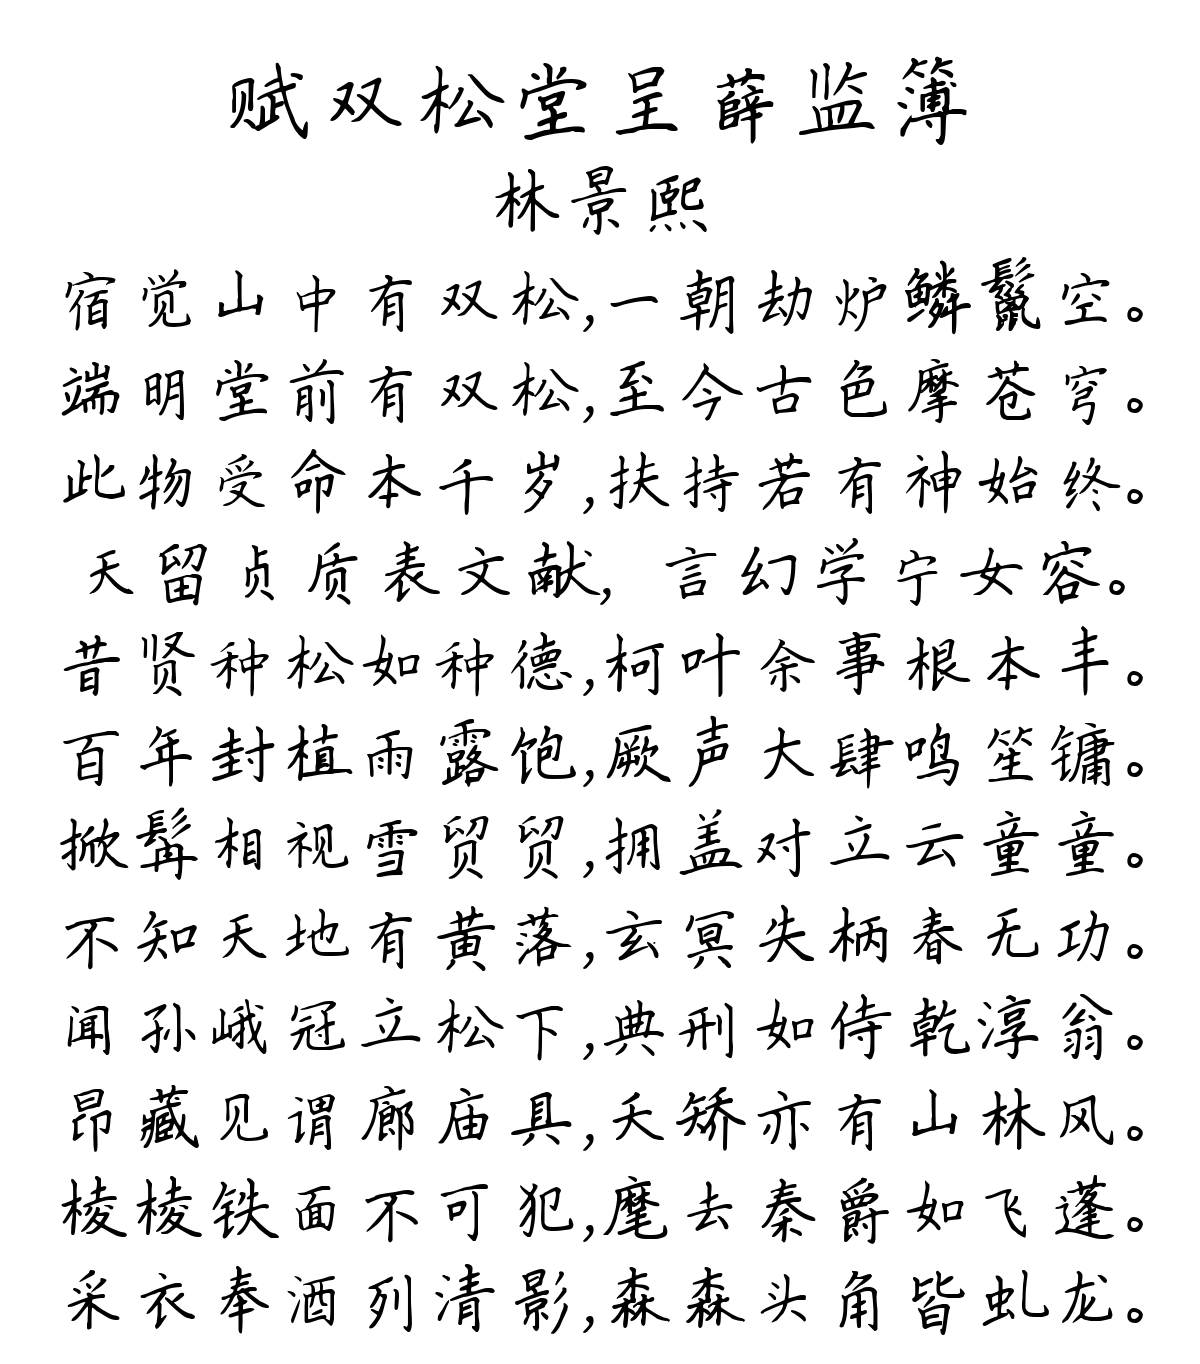 赋双松堂呈薛监簿
林景熙
宿觉山中有双松,一朝劫炉鳞鬣空。
端明堂前有双松,至今古色摩苍穹。
此物受命本千岁,扶持若有神始终。
天留贞质表文献,言幻学宁女容。
昔贤种松如种德,柯叶余事根本丰。
百年封植雨露饱,厥声大肆鸣笙镛。
掀髯相视雪贸贸,拥盖对立云童童。
不知天地有黄落,玄冥失柄春无功。
闻孙峨冠立松下,典刑如侍乾淳翁。
昂藏见谓廊庙具,夭矫亦有山林风。
棱棱铁面不可犯,麾去秦爵如飞蓬。
采衣奉酒列清影,森森头角皆虬龙。